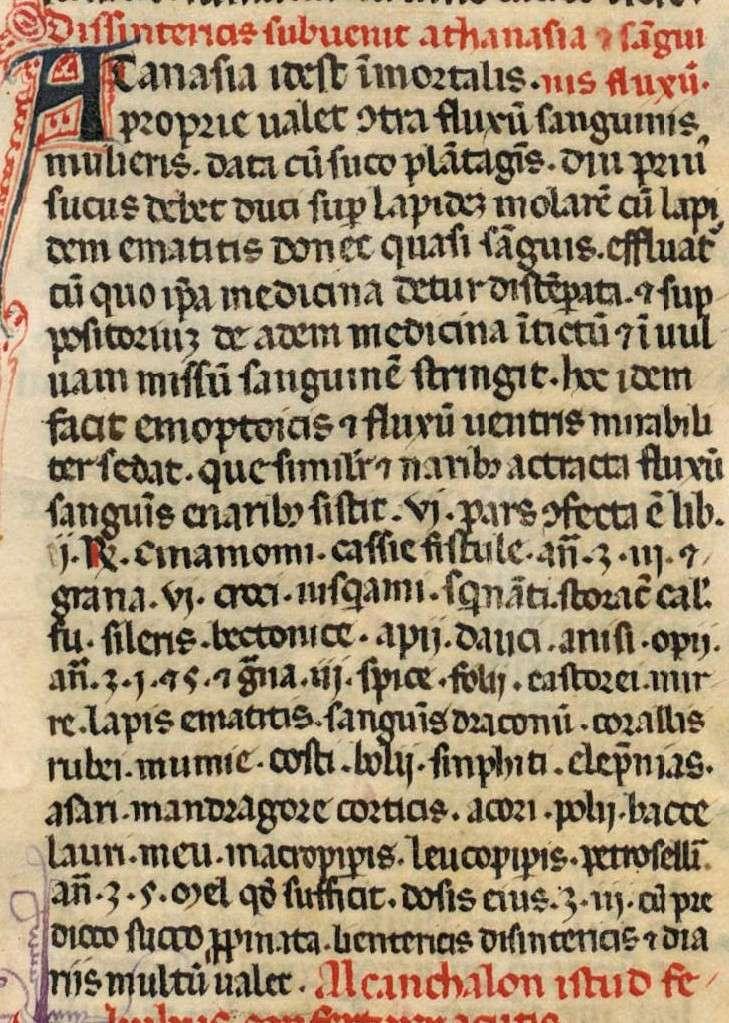 Dissintericis subuenit athanasia ⁊ sãgui
ATanasia idest ĩmortalis. nis fluxũ.
proprie ualet ꝯtra fluxũ sanguinis
mulieris. data cũ suco plãtagĩs. diu priũ
sucus debet duci sup lapideʒ molarẽ cũ lapi
dem ematitis donec quasi sãguis. effluat
cũ quo ip̃a medicina detur distẽꝑata. ⁊ sup
positoriuʒ de adem medicina ĩtictũ ⁊ ĩ uul
uam missũ sanguinẽ stringit. hoc idem
facit emoptoicis ⁊ fluxũ uentris mirabili
ter sedat. que simil'r ⁊ naribʒ actracta fluxũ
sanguĩs enaribʒ sistit. vj. pars ꝯfecta ẽ lib.
ij. R̃. cinamomi. cassie fistule. añ. ʒ. iii. ⁊
grana. vj. croci. iusqami. sq̃nãti. storac̃ cal'.
fu. sileris. bectonice. apij. dauci. anisi. opij.
añ. ʒ. j. ⁊ s. ⁊ g̃na. iij. spice. folij. castorei. mir
re. lapis ematitis. sanguĩs draconũ. corallis
rubei. mumie. costi. bolij. sinphiti. elep̃nias.
asari. mandragore corticis. acori. polij. bacce
lauri. meu. macropiꝑis. leucopiꝑis. petrosellĩ.
añ. ʒ. s. mel qđ sufficit. dosis eius. ʒ. iii. cũ pre
dicto succo ꝓpinata. lientericis disintericis ⁊ dia
riis multũ ualet. Alcanchalon istud fe